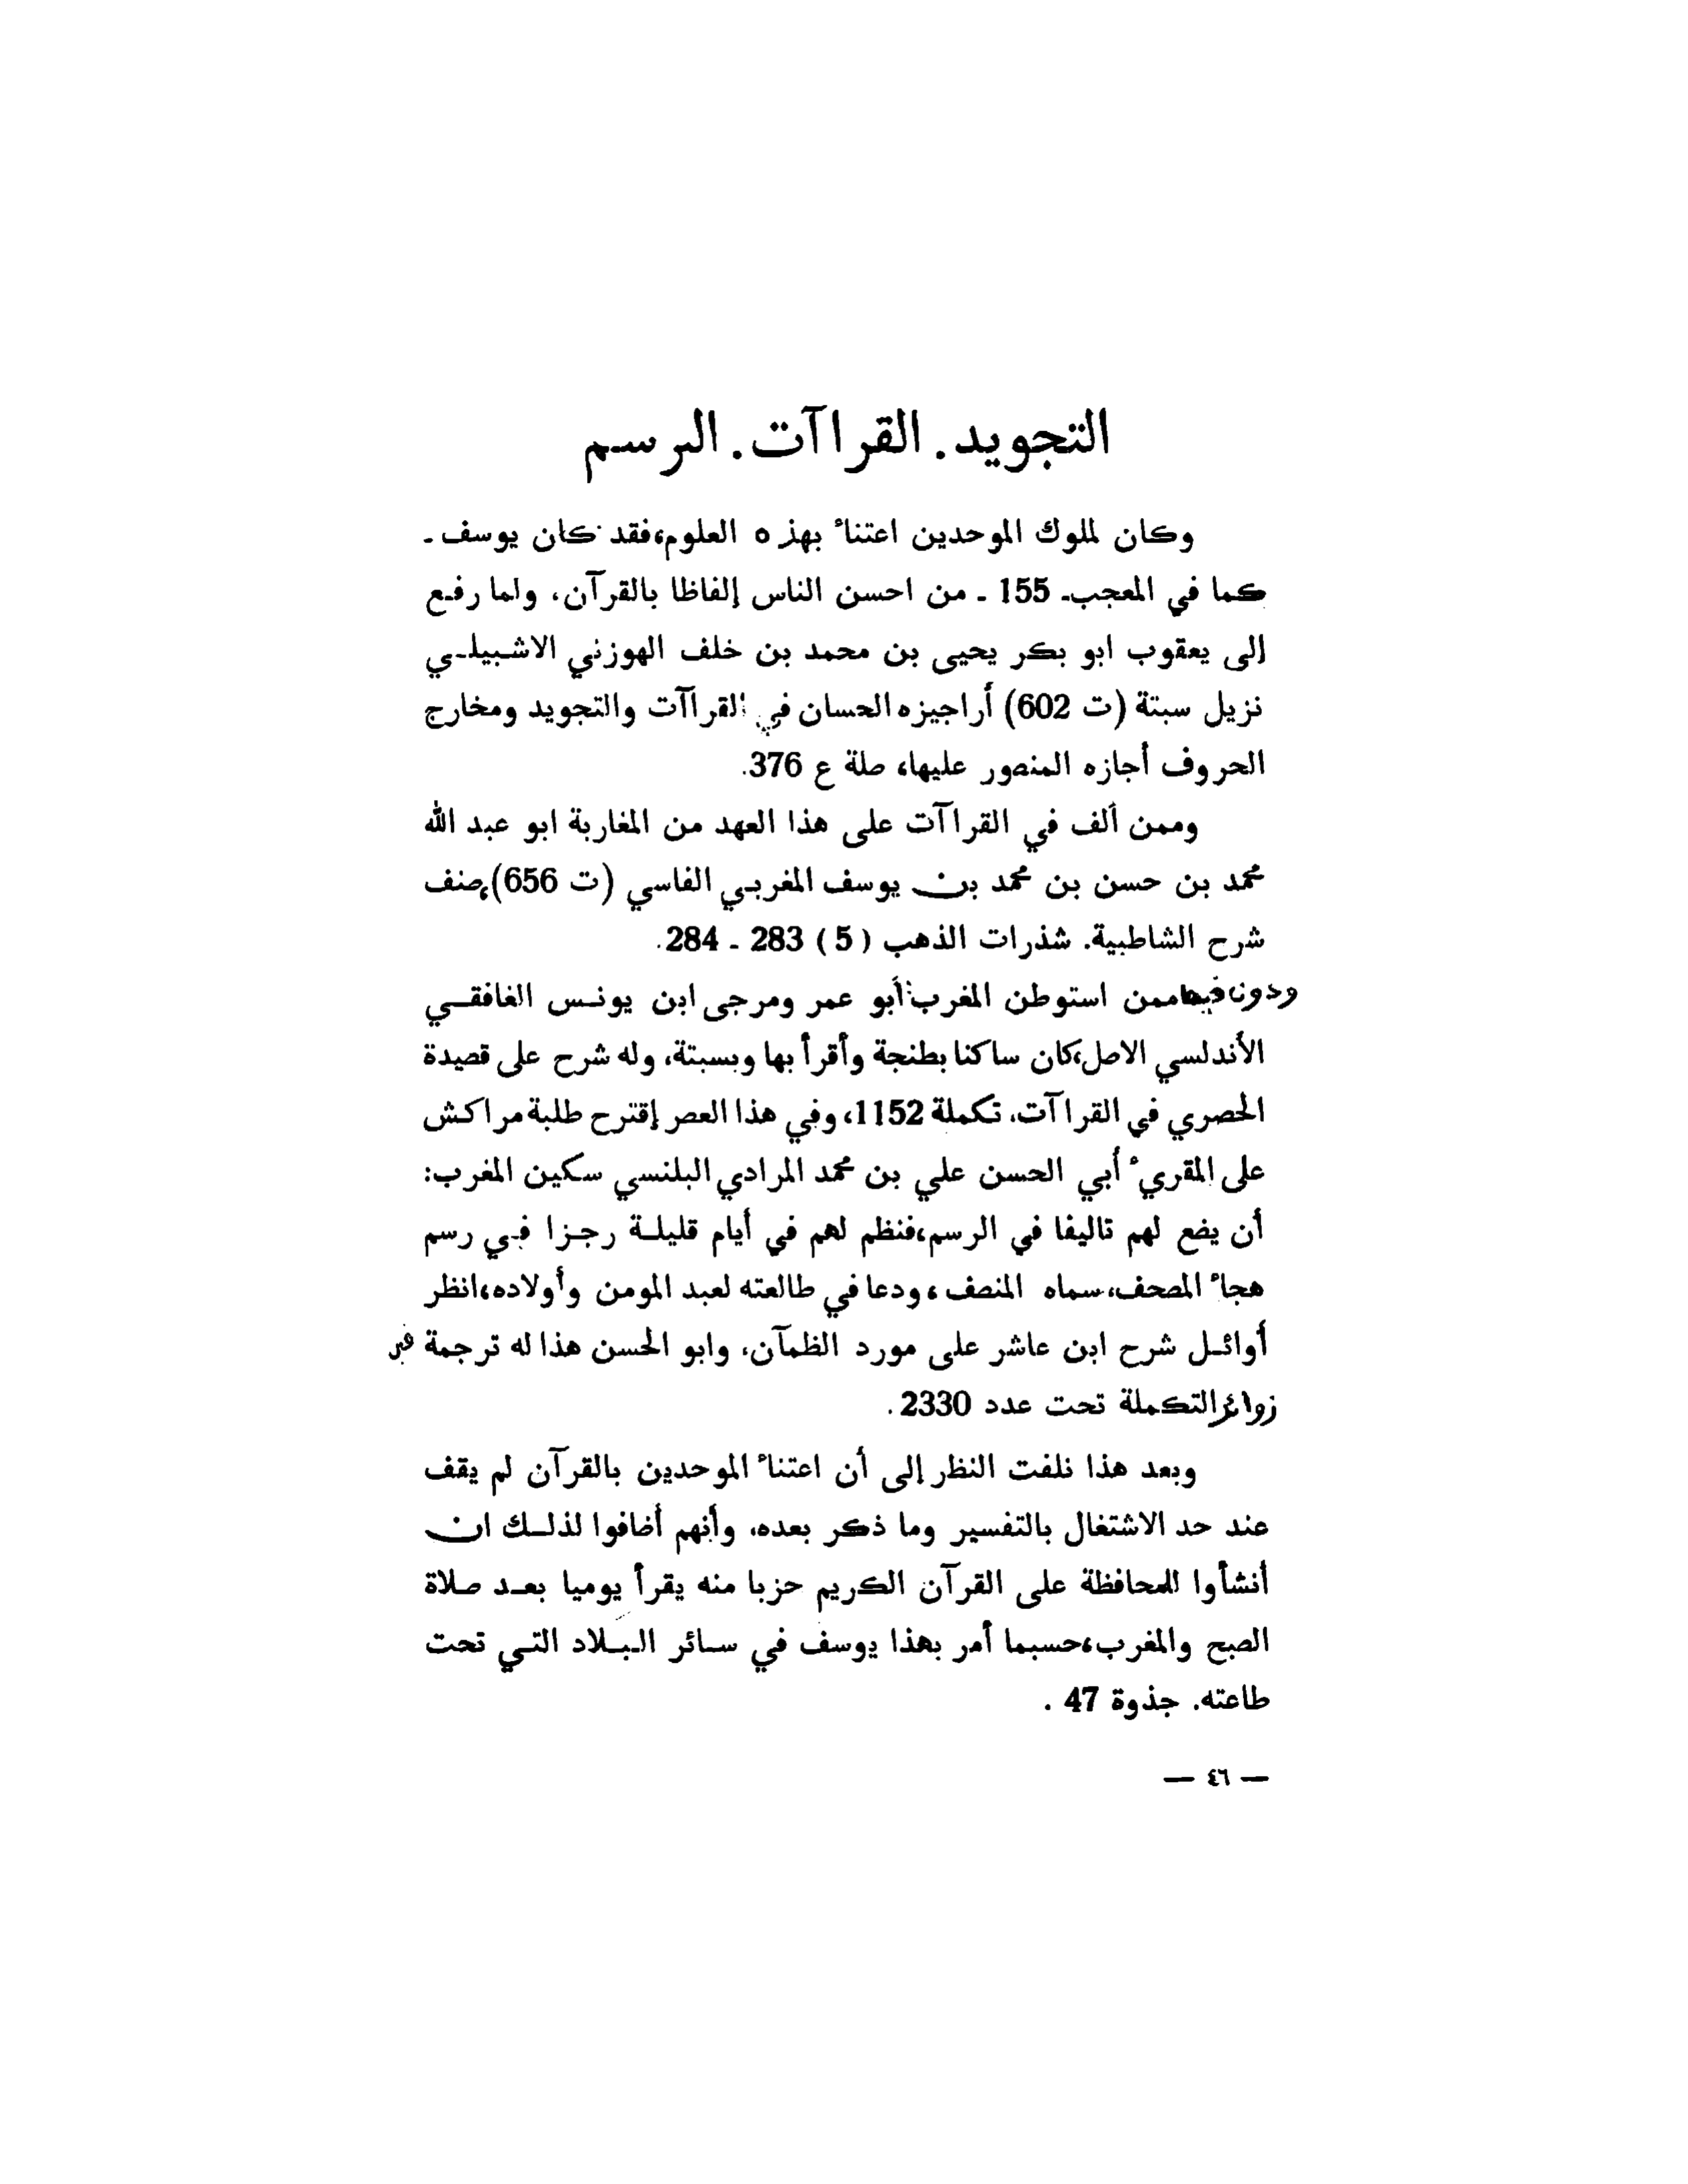 التجويد. القراآت. الرسم
وكان لملوك الموحدين اعتناء بهذه العلوم، فقد كان يوسف -
كما في المعجب - 155 - من احسن الناس إلفاظا بالقرآن، ولما رفع
إلى يعقوب ابو بكر يحيى بن محمد بن خلف الهوزني الاشبيلي
نزيل سبتة (ت 602) أراجيزه الحسان في القراآت والتجويد ومخارج
الحروف أجازه المنصور عليها، صلة ع 376.
وممن ألف في القراآت على هذا العهد من المغاربة ابو عبد الله
محمد بن حسن بن محمد بن يوسف المغربي الفاسي (ت 656)، صنف
شرح الشاطبية. شذرات الذهب (5) 283 - 284.
ودون فيها ممن استوطن المغرب: أبو عمر ومرجى ابن يونس الغافقي
الأندلسي الاصل، كان ساكنا بطنجة وأقرأ بها وبسبتة، وله شرح على قصيدة
الحصري في القراآت، تكملة 1152، وفي هذا العصر إقترح طلبة مراكش
على المقريء أبي الحسن علي بن محمد المرادي البلنسي سكين المغرب:
أن يضع لهم تاليفا في الرسم، فنظم لهم في أيام قليلة رجزا في رسم
هجاء المصحف، سماه المنصف، ودعا في طالعته لعبد المومن وأولاده، انظر
أوائل شرح ابن عاشر على مورد الظمآن، وابو الحسن هذا له ترجمة في
زوائد التكملة تحت عدد 2330.
وبعد هذا نلفت النظر إلى أن اعتناء الموحدين بالقرآن لم يقف
عند حد الاشتغال بالتفسير وما ذكر بعده، وأنهم أضافوا لذلك ان
أنشأوا للمحافظة على القرآن الكريم حزبا منه يقرأ يوميا بعد صلاة
الصبح والمغرب، حسبما أمر بهذا يوسف في سائر البلاد التي تحت
طاعته. جذوة 47.
— ٤٦ —